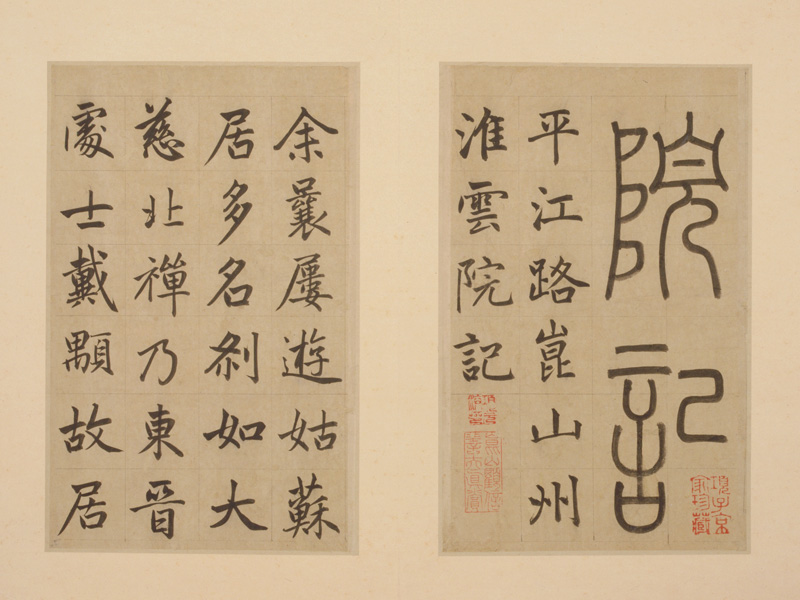 院記
平江路崑山州
淮雲院記
項子京家珍藏
余曩屢遊姑蘇
居多名刹如大
慈北禪乃東晉
處士戴顒故居